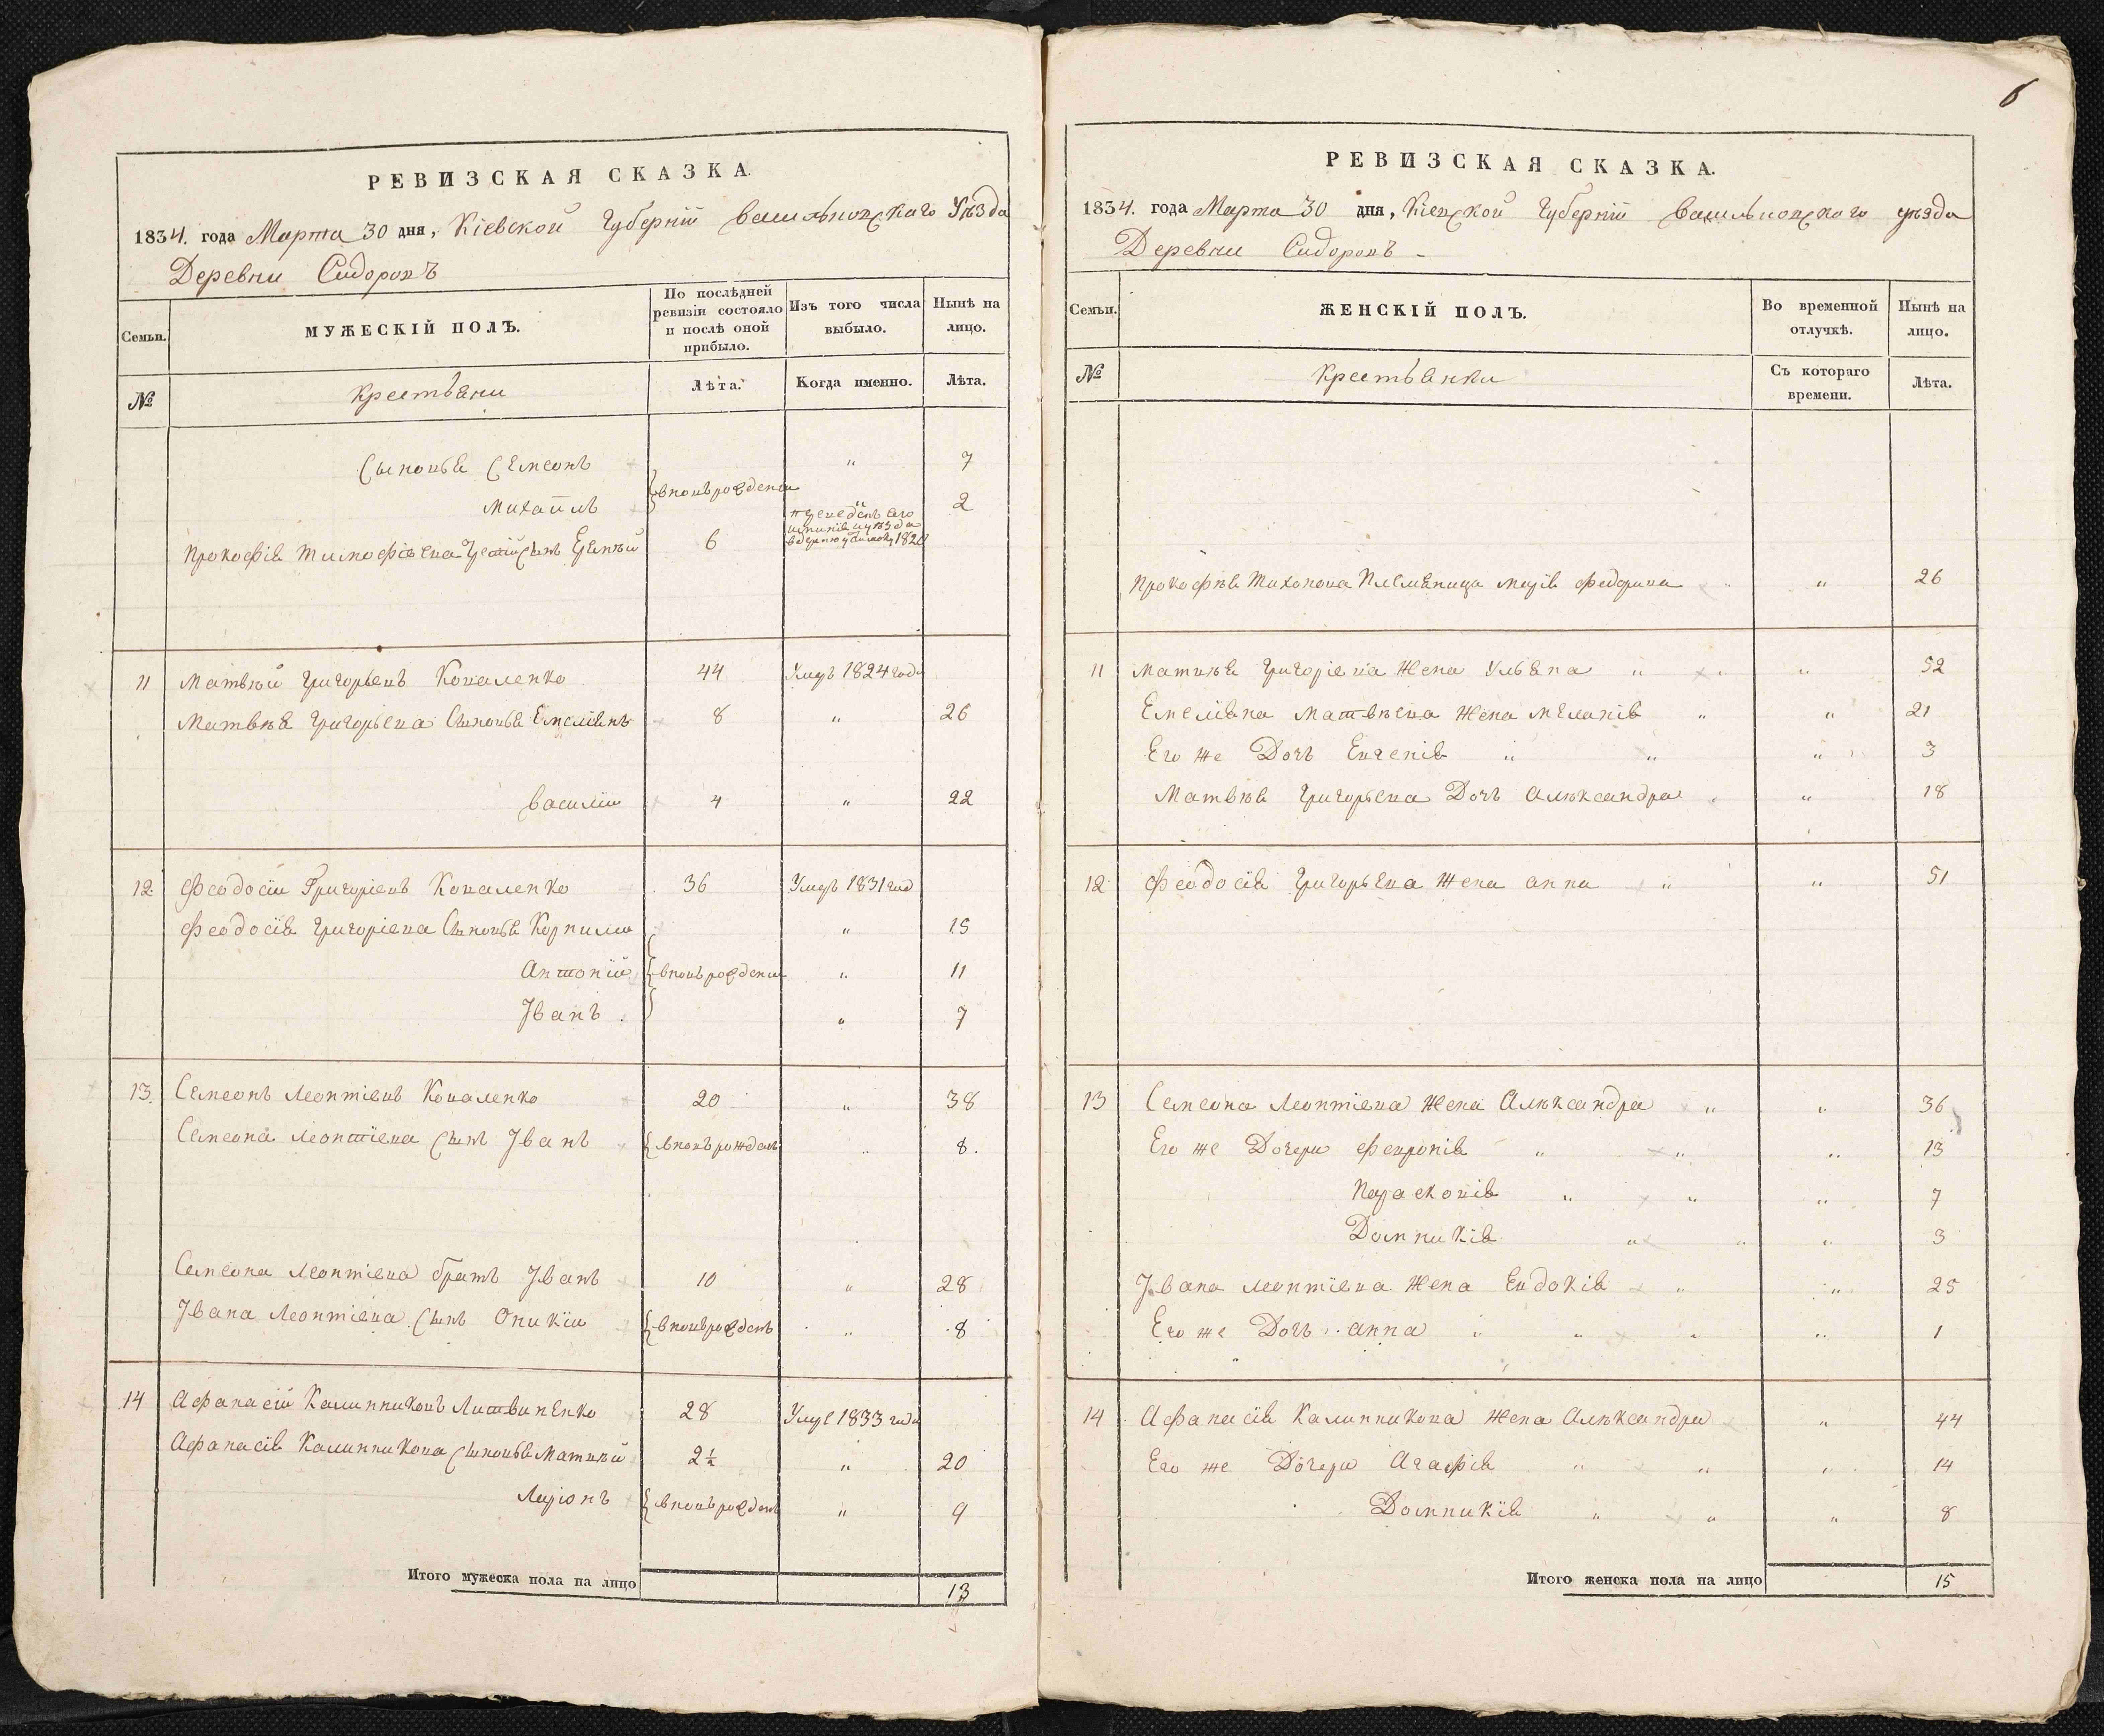 6
РЕВИЗСКАЯ СКАЗКА.
1834. года Марта 30 дня, Кіевской Губерніи васильковскаго Уѣзда
Деревни Сидоровъ
Семьи.
МУЖЕСКІЙ ПОЛЪ.
По послѣдней ревизіи состояло и послѣ оной прибыло.
Изъ того числа выбыло.
Нынѣ на лицо.
№
крестьяни
Лѣта.
Когда именно.
Лѣта.
Сыновья Семеонъ " 7
Михаилъ { вновьрождени " 2
Прокофія Тимофіева сынъ 6 его 182
11 Матвѣй Григорьевъ Коваленко 44 Умеръ 1824 года
Матвѣя Григорьева Сыновья Емеліянъ 8 " 26
василій 4 " 22
12 Феодосій Григоріевъ Коваленко 36 Умеръ 1831 год
Феодосія Григоріева Сыновья Корнилій " 15
Антоній { вновьрождени " 11
Іванъ . " 7
13. Семеонъ Леонтіевъ Коваленко 20 " 38
Семеона Леонтіева Сынъ Іванъ { вновьрожденъ " 8.
Семеона Леонтіева братъ Іванъ 10 " 28
Івана Леонтіева Сынъ Оникій { вновьрожденъ " 8
14 Афанасій Калинниковъ Литвиненко 28 Умре 1833 года
Афанасія Калинникова Сыновья Матвѣй 2½ " 20
Ларіонъ { вновьрожденъ " 9
Итого мужеска пола на лицо 13
РЕВИЗСКАЯ СКАЗКА.
1834. года Марта 30 дня, Кіевской Губерніи васильковского уѣзда
Деревни Сидоровъ -
Семьи.
ЖЕНСКІЙ ПОЛЪ.
Во временной отлучкѣ.
Нынѣ на лицо.
№
крестьянки
Съ котораго времени.
Лѣта.
Прокофѣя Тихонова Племяница марія федорова " 26
11 Матвѣя Григоріева Жена Ульяна " " 52
Емеліяна Матвѣева Жена Меланія " " 21
Его же Дочь Евгенія " " " 3
Матвѣя Григорьева Дочь Алѣксандра " 18
12 Феодосія Григорьева Жена анна " " 51
13 Семеона Леонтіева Жена Алѣксандра " " 36
Его же Дочери Февронія " " " 13
Парасковія " " " 7
Домникія " " " 3
Івана Леонтіева Жена Евдокія " " 25
Его же Дочь анна " " " " 1
14 Афанасія Калинникова Жена Алѣксандра " 44
Его же Дочери Агафія " " " 14
Домникія " " " 8
Итого женска пола на лицо 15